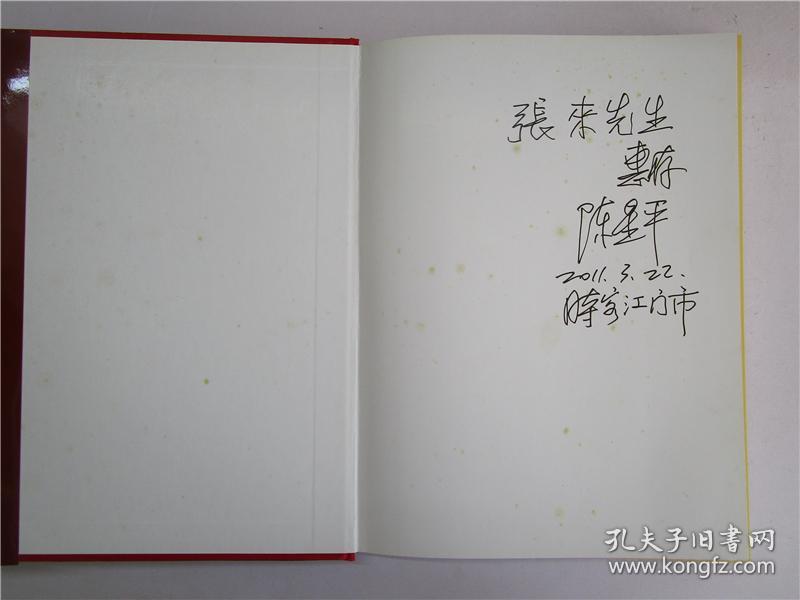 張来先生
惠存
陈星平
2011.3.22.
時客江门市
孔夫子旧書网
www.kongfz.com